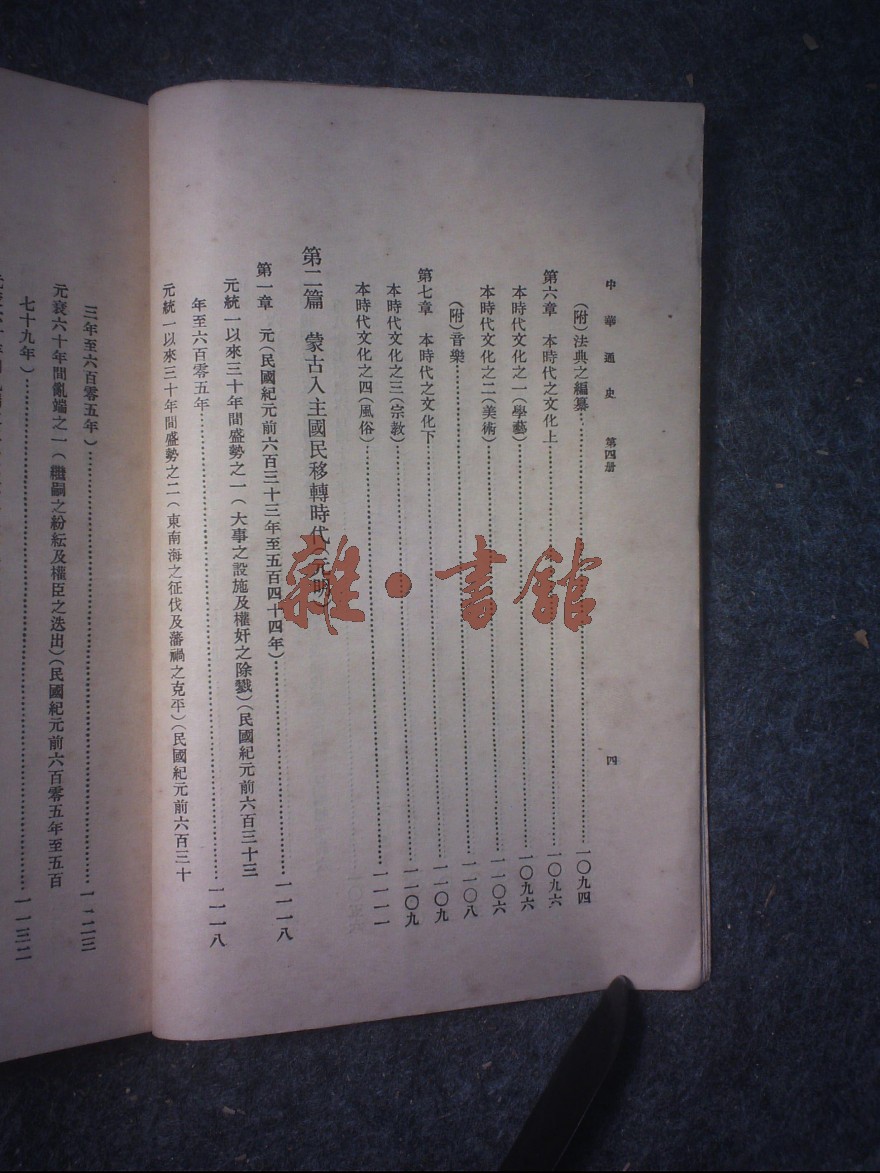 中華通史 第四册 四
(附)法典之編纂……一〇九四
第六章 本時代之文化上……一〇九六
本時代文化之一(學藝)……一〇九六
本時代文化之二(美術)……一一〇六
(附)音樂……一一〇八
第七章 本時代之文化下……一一〇九
本時代文化之三(宗教)……一一〇九
本時代文化之四(風俗)……一一一一
第二篇 蒙古入主國民移轉時代(元明)
第一章 元(民國紀元前六百三十三年至五百四十四年)……一一一八
元統一以來三十年間盛勢之一(大事之設施及權奸之除戮)(民國紀元前六百三十三
年至六百零五年……一一一八
元統一以來三十年間盛勢之二(東南海之征伐及藩禍之克平)(民國紀元前六百三十
三年至六百零五年)……一一二三
元衰六十年間亂端之一(繼嗣之紛紜及權臣之迭出)(民國紀元前六百零五年至五百
七十九年)……一一三二
雜·書館